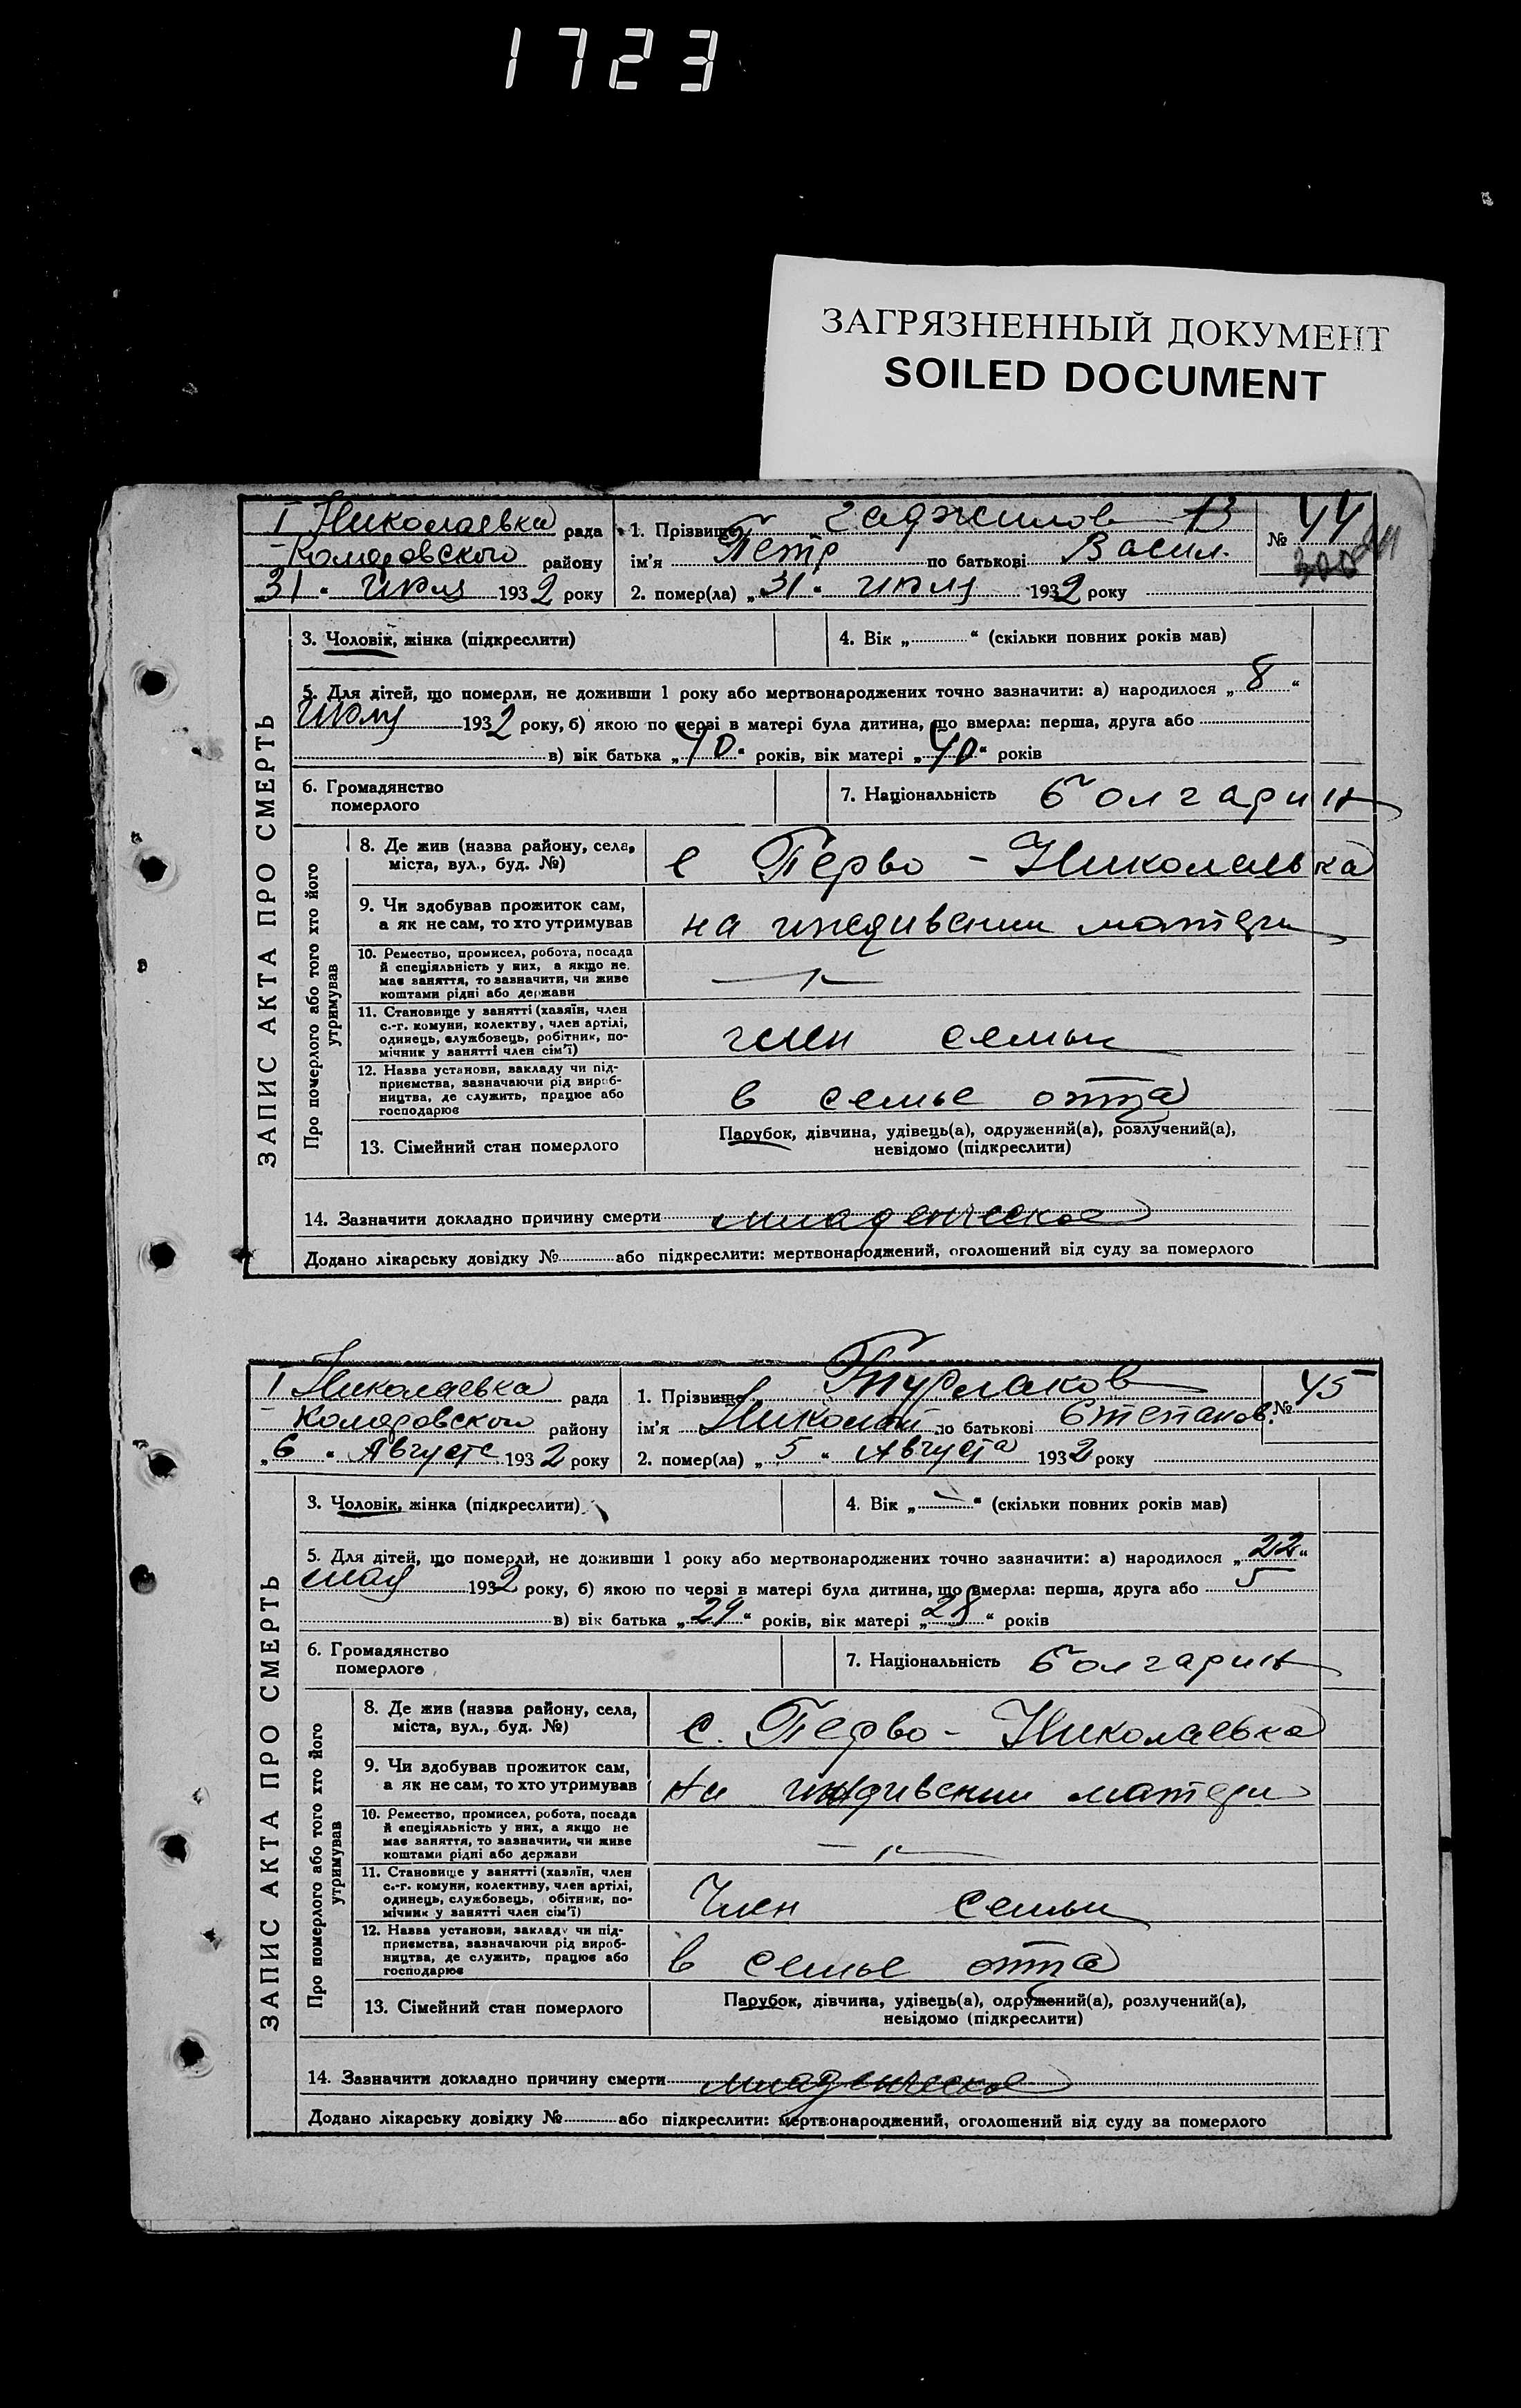 1723
ЗАГРЯЗНЕННЫЙ ДОКУМЕНТ
SOILED DOCUMENT
ЗАПИС АКТА ПРО СМЕРТЬ
I Николаевка рада
Коларовского району
„31“ Июля 1932 року
1. Прізвище Гаджилов 13
ім'я Петр по батькові Васил.
2. помер(ла) „31“ Июля 1932 року
№ 44
3. Чоловік, жінка (підкреслити)
4. Вік „ “ (скільки повних років мав)
5. Для дітей, що померли, не доживши 1 року або мертвонароджених точно зазначити: а) народилося „8“
Июля 1932 року, б) якою по черзі в матері була дитина, що вмерла: перша, друга або
в) вік батька „40“ років, вік матері „40“ років
6. Громадянство
померлого
7. Національність болгарин
Про померлого або того хто його
утримував
8. Де жив (назва району, села,
міста, вул., буд. №)
с Перво-Николаевка
9. Чи здобував прожиток сам,
а як не сам, то хто утримував
на иждивении матери
10. Ремество, промисел, робота, посада
й спеціяльність у них, а якщо не
має заняття, то зазначити, чи живе
коштами рідні або держави
11. Становище у занятті (хазяїн, член
с.-г. комуни, колектву, член артілі,
одинець, службовець, робітник, по-
мічник у занятті член сім'ї)
член семьи
12. Назва установи, закладу чи під-
приємства, зазначаючи рід вироб-
ництва, де служить, працює або
господарює
в семье отца
13. Сімейний стан померлого
Парубок, дівчина, удівець(а), одружений(а), розлучений(а),
невідомо (підкреслити)
14. Зазначити докладно причину смерти младенческое
Додано лікарську довідку № або підкреслити: мертвонароджений, оголошений від суду за померлого
ЗАПИС АКТА ПРО СМЕРТЬ
I Николаевка рада
Коларовского району
„6“ Августа 1932 року
1. Прізвище Турлаков
ім'я Николай по батькові Степанов.
2. помер(ла) „5“ Августа 1932 року
№ 45
3. Чоловік, жінка (підкреслити)
4. Вік „—“ (скільки повних років мав)
5. Для дітей, що померли, не доживши 1 року або мертвонароджених точно зазначити: а) народилося „22“
мая 1932 року, б) якою по черзі в матері була дитина, що вмерла: перша, друга або 5
в) вік батька „29“ років, вік матері „28“ років
6. Громадянство
померлого
7. Національність болгарин
Про померлого або того хто його
утримував
8. Де жив (назва району, села,
міста, вул., буд. №)
с. Перво-Николаевка
9. Чи здобував прожиток сам,
а як не сам, то хто утримував
на матери
10. Ремество, промисел, робота, посада
й спеціяльність у них, а якщо не
має заняття, то зазначити, чи живе
коштами рідні або держави
11. Становище у занятті (хазяїн, член
с.-г. комуни, колективу, член артілі,
одинець, службовець, обітник, по-
мічник у занятті член сім'ї)
Член семьи
12. Назва установи, закладу чи під-
приємства, зазначаючи рід вироб-
ництва, де служить, працює або
господарює
в семье отца
13. Сімейний стан померлого
Парубок, дівчина, удівець(а), одружений(а), розлучений(а),
невідомо (підкреслити)
14. Зазначити докладно причину смерти младенческое
Додано лікарську довідку № або підкреслити: мертвонароджений, оголошений від суду за померлого